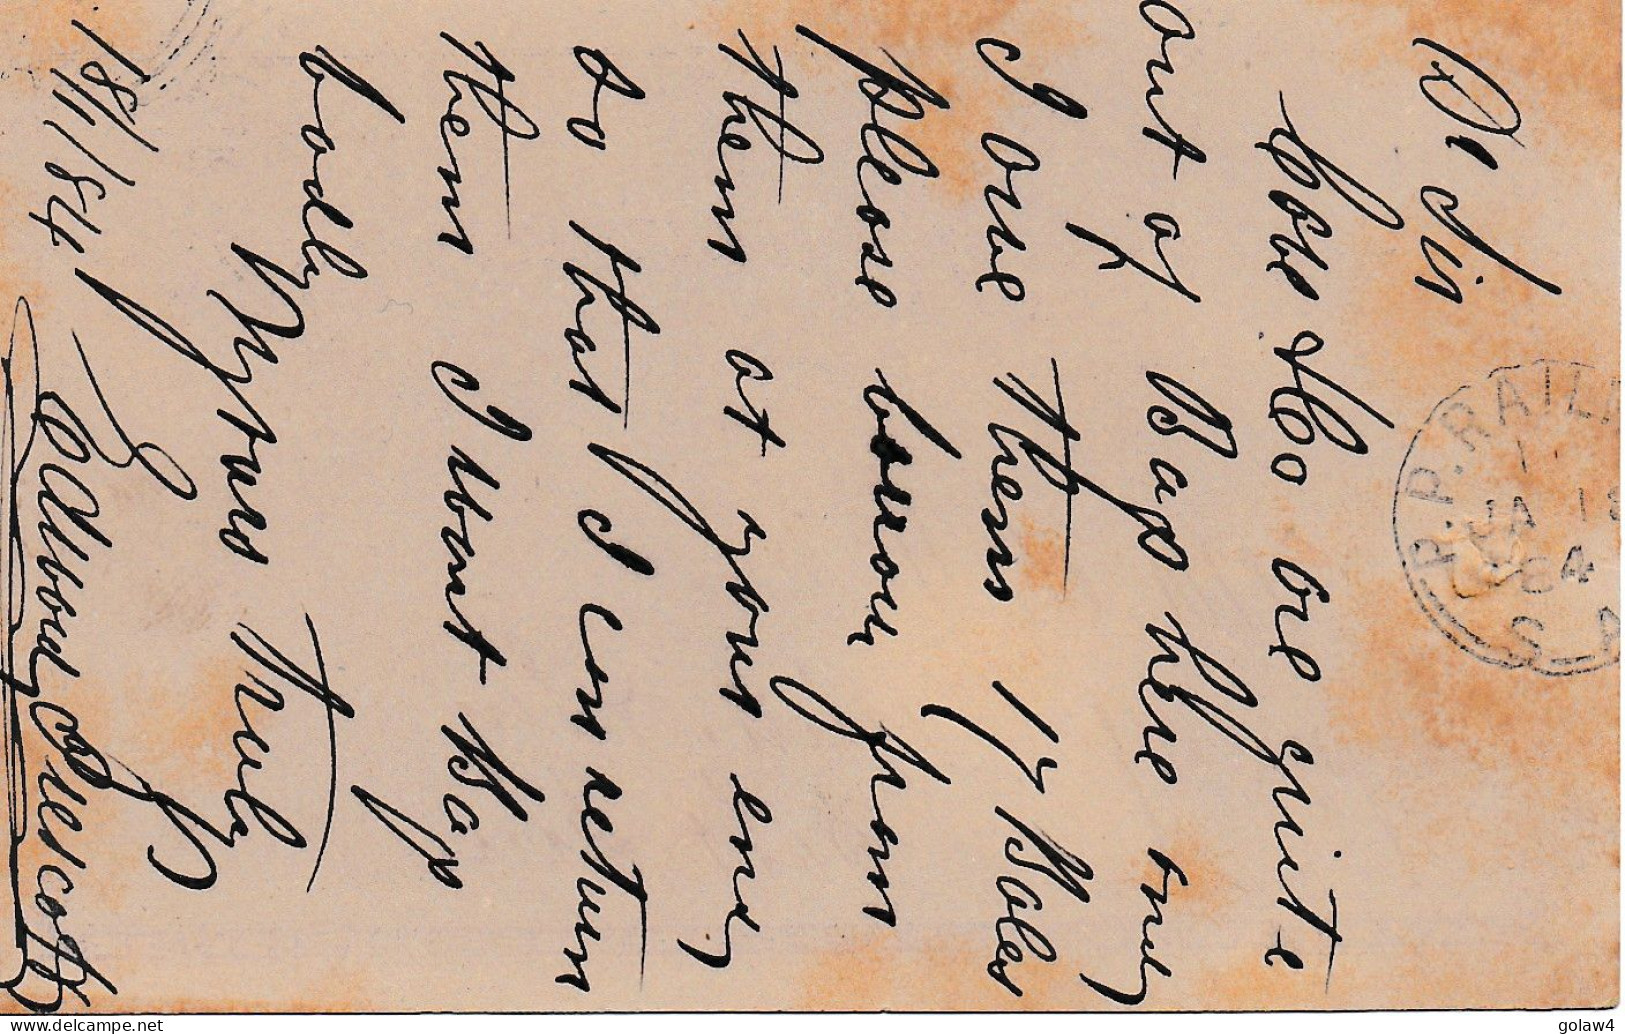 Dr Sir
Cobs & Co are quite
out of Bags here only
I owe them 17 Bales
please borrow from
them at your end
so that I can return
them I want Bags
badly
Yours Truly
18/1/84
Prescott
P.P. RAIL
1
JA 18
84
S. A
delcampe.net
golaw4